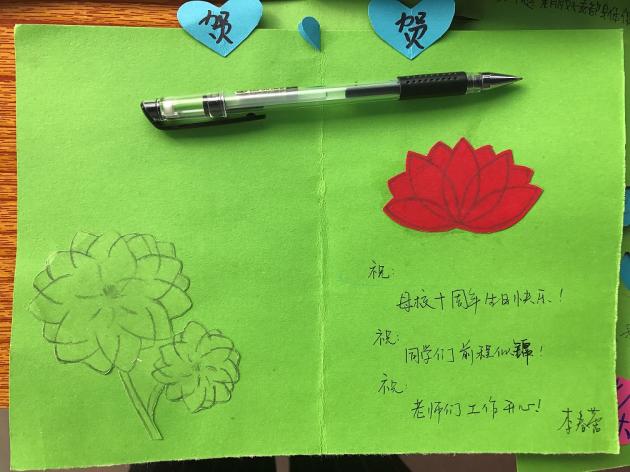 贺
贺
祝:
母校十周年生日快乐!
祝:
同学们前程似锦!
祝:
老师们工作开心!
李春蕾